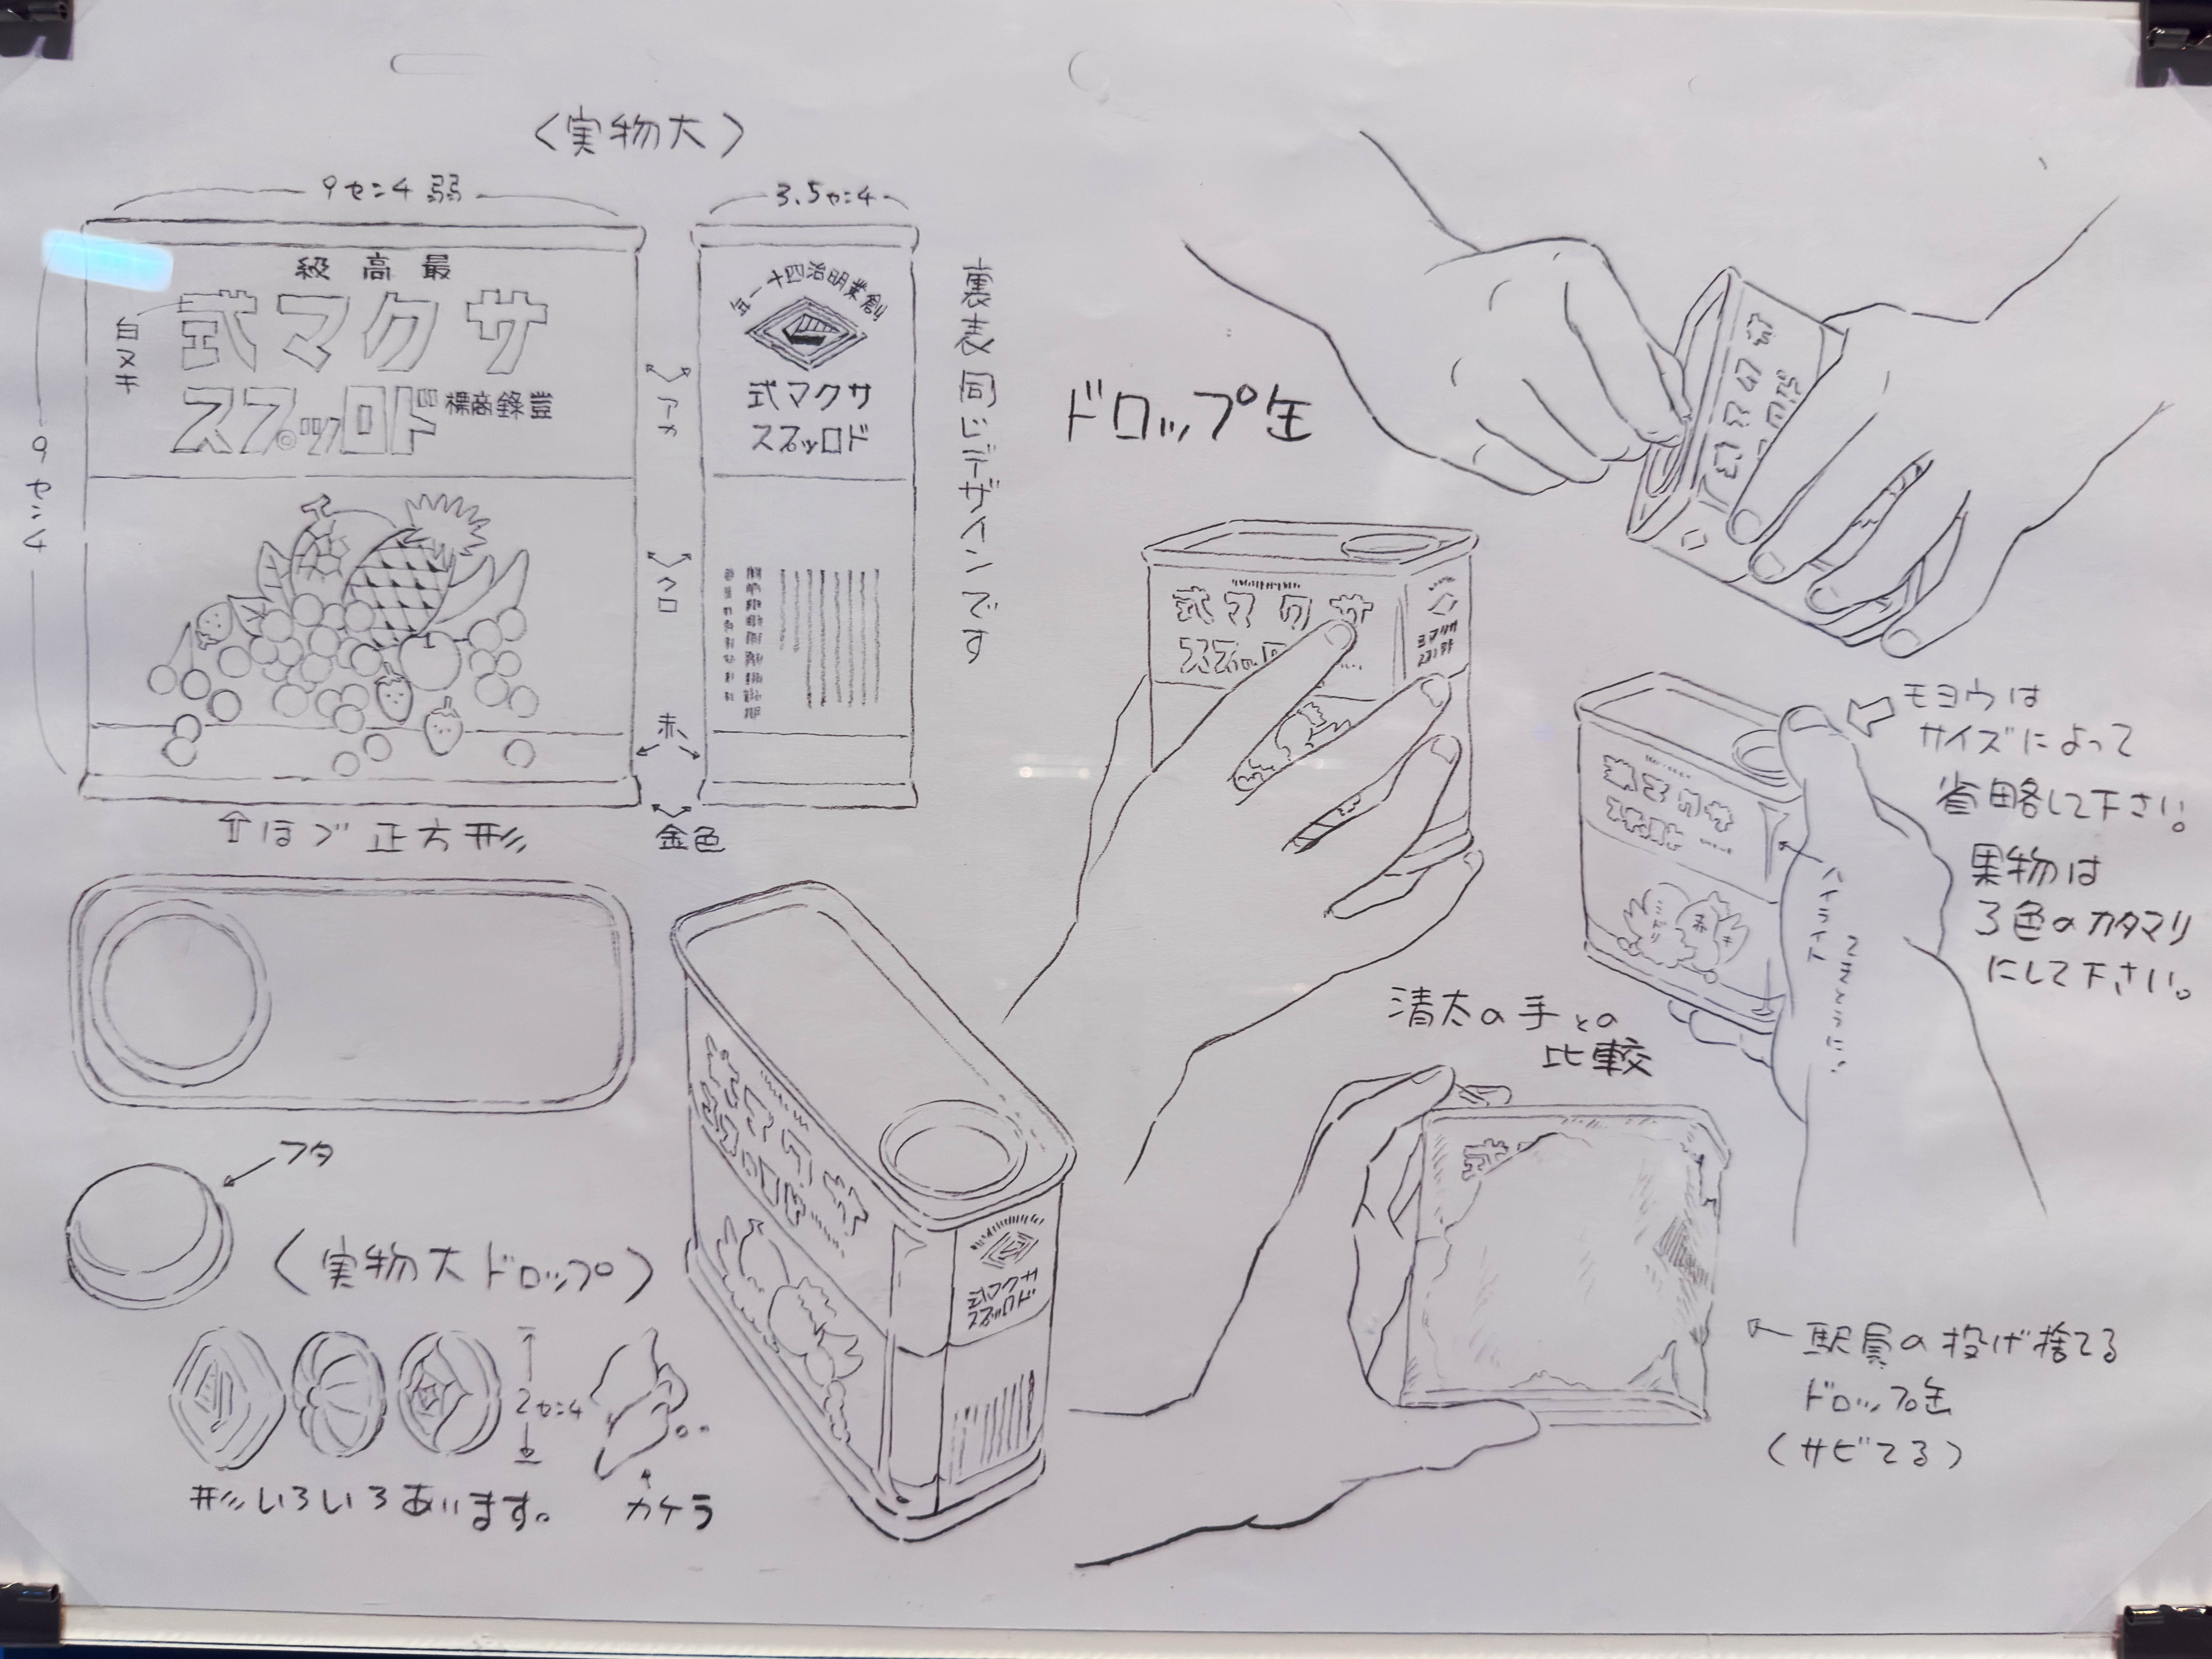 〈実物大〉
9センチ弱
3.5センチ
9センチ
級高最
式マクサ
スプッロド
標商錄登
白ヌキ
アカ
クロ
赤
金色
年一十四治明業創
式マクサ
スプッロド
裏表同じデザインです
⇧ほぼ正方形
フタ
〈実物大ドロップ〉
2センチ
形いろいろあります。
カケラ
ドロップ缶
式マクサ
スプッロド
式マクサ
スプッロド
式マクサ
スプッロド
式マクサ
スプッロド
モヨウは
サイズによって
省略して下さい。
果物は
3色のカタマリ
にして下さい。
ハイライト
ミドリ
赤
キ
清太の手との
比較
式
駅員の投げ捨てる
ドロップ缶
(サビてる)